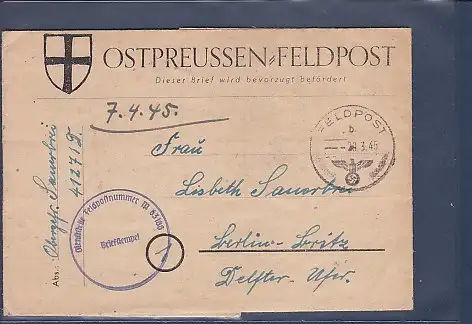 OSTPREUSSEN-FELDPOST
Dieser Brief wird bevorzugt befördert
7.4.45.
FELDPOST
b
3.45
Frau
Lisbeth Sauerbrei
Berlin-Britz
Delfter-Ufer.
Abs.: Obergefr. Sauerbrei
41271 D.
Feldpostnummer M 63100
Briefstempel
1